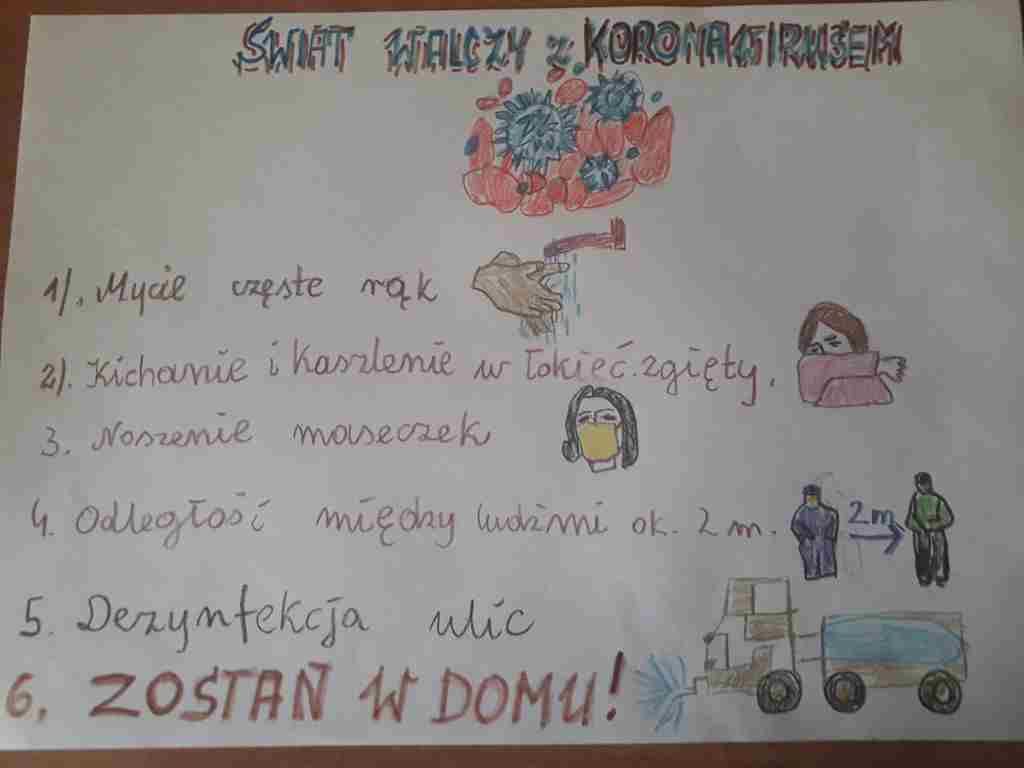 ŚWIAT WALCZY z KORONAWIRUSEM
1). Mycie częste rąk
2). Kichanie i kaszlenie w łokieć zgięty.
3. Noszenie maseczek
4. Odległość między ludźmi ok. 2 m.
2m
5. Dezynfekcja ulic
6. ZOSTAŃ W DOMU!